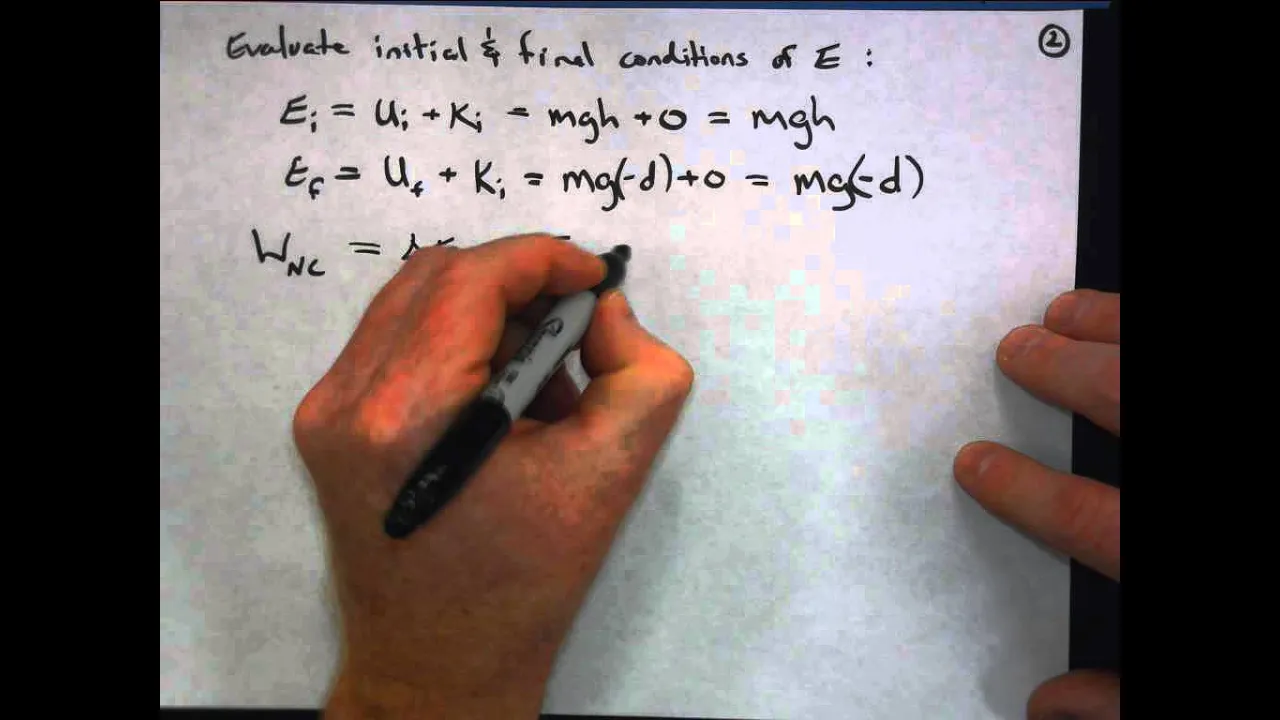 Evaluate initial & final conditions of E :
②
Ei = Ui + Ki = mgh + 0 = mgh
Ef = Uf + Ki = mg(-d) + 0 = mg(-d)
WNC =